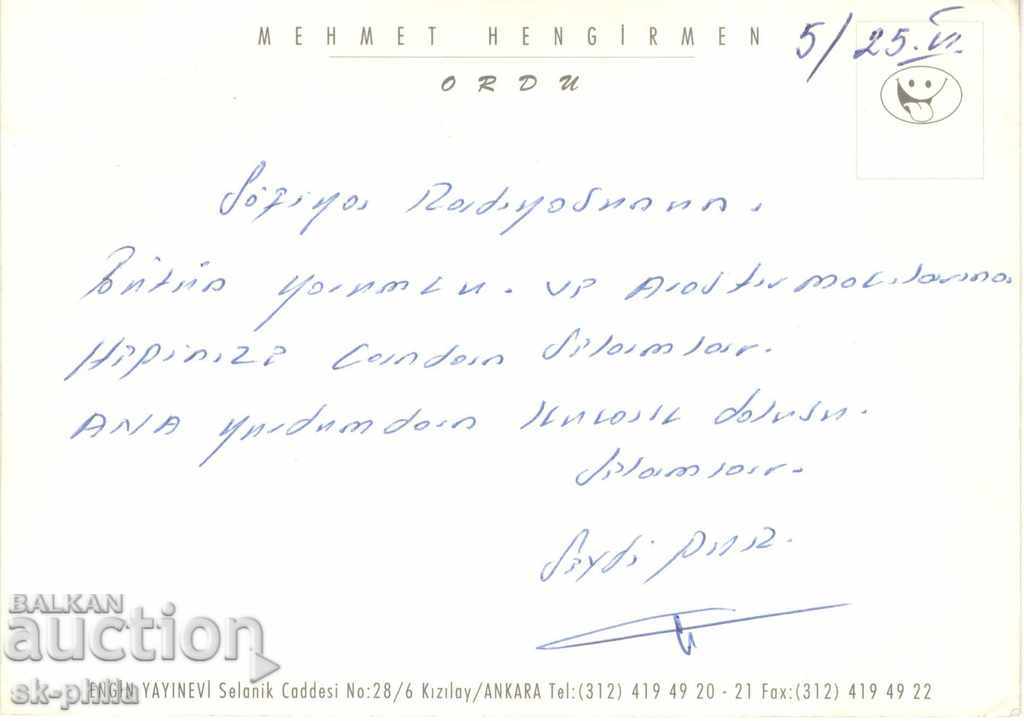 MEHMET HENGİRMEN
ORDU
5/25.VI.
Sofiya Radyosuna.
Bütün yorumcu. ve Araştırmacılarına
Hepinize Candan Selamlar.
ANA yurdumdan Kucak dolusu.
Selamlar.
Seydi
BALKAN
auction
sk-philia
ENGİN YAYINEVİ Selanik Caddesi No:28/6 Kızılay/ANKARA Tel:(312) 419 49 20 - 21 Fax:(312) 419 49 22